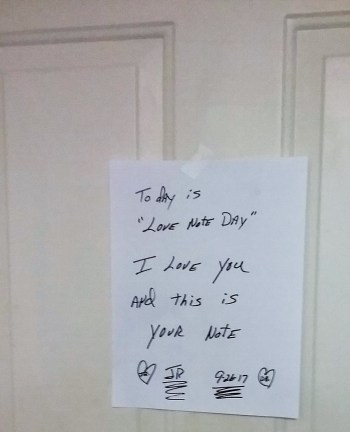 Today is
"LOVE NOTE DAY"
I LOVE you
AND this is
YOUR NOTE
JR 9-26-17